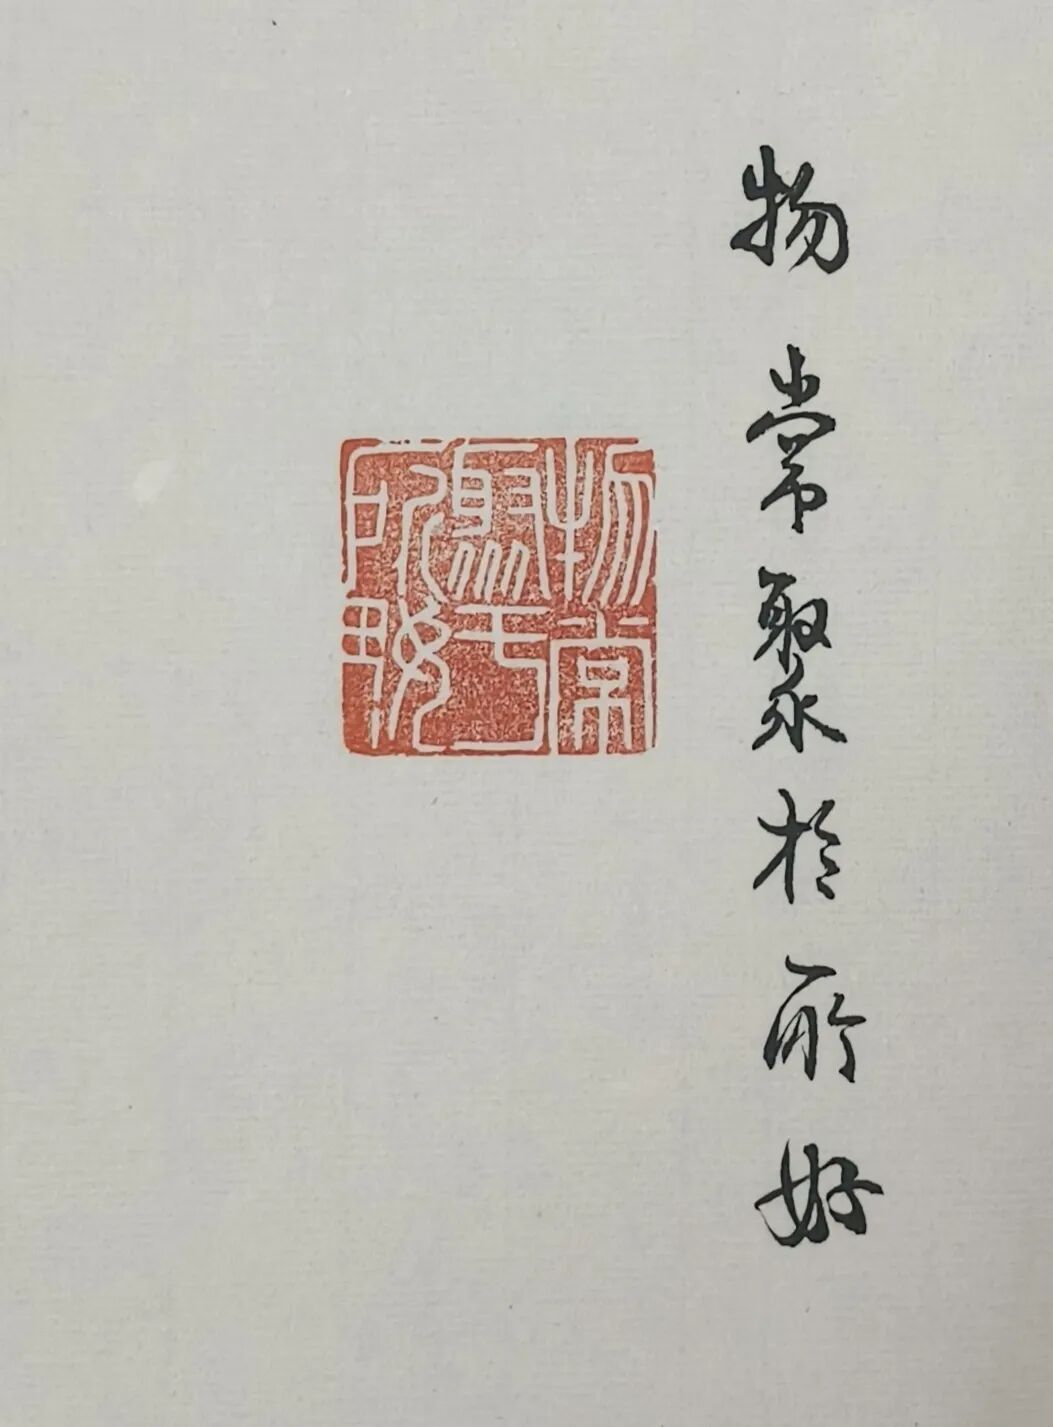 物常聚於所好
物常聚于所好